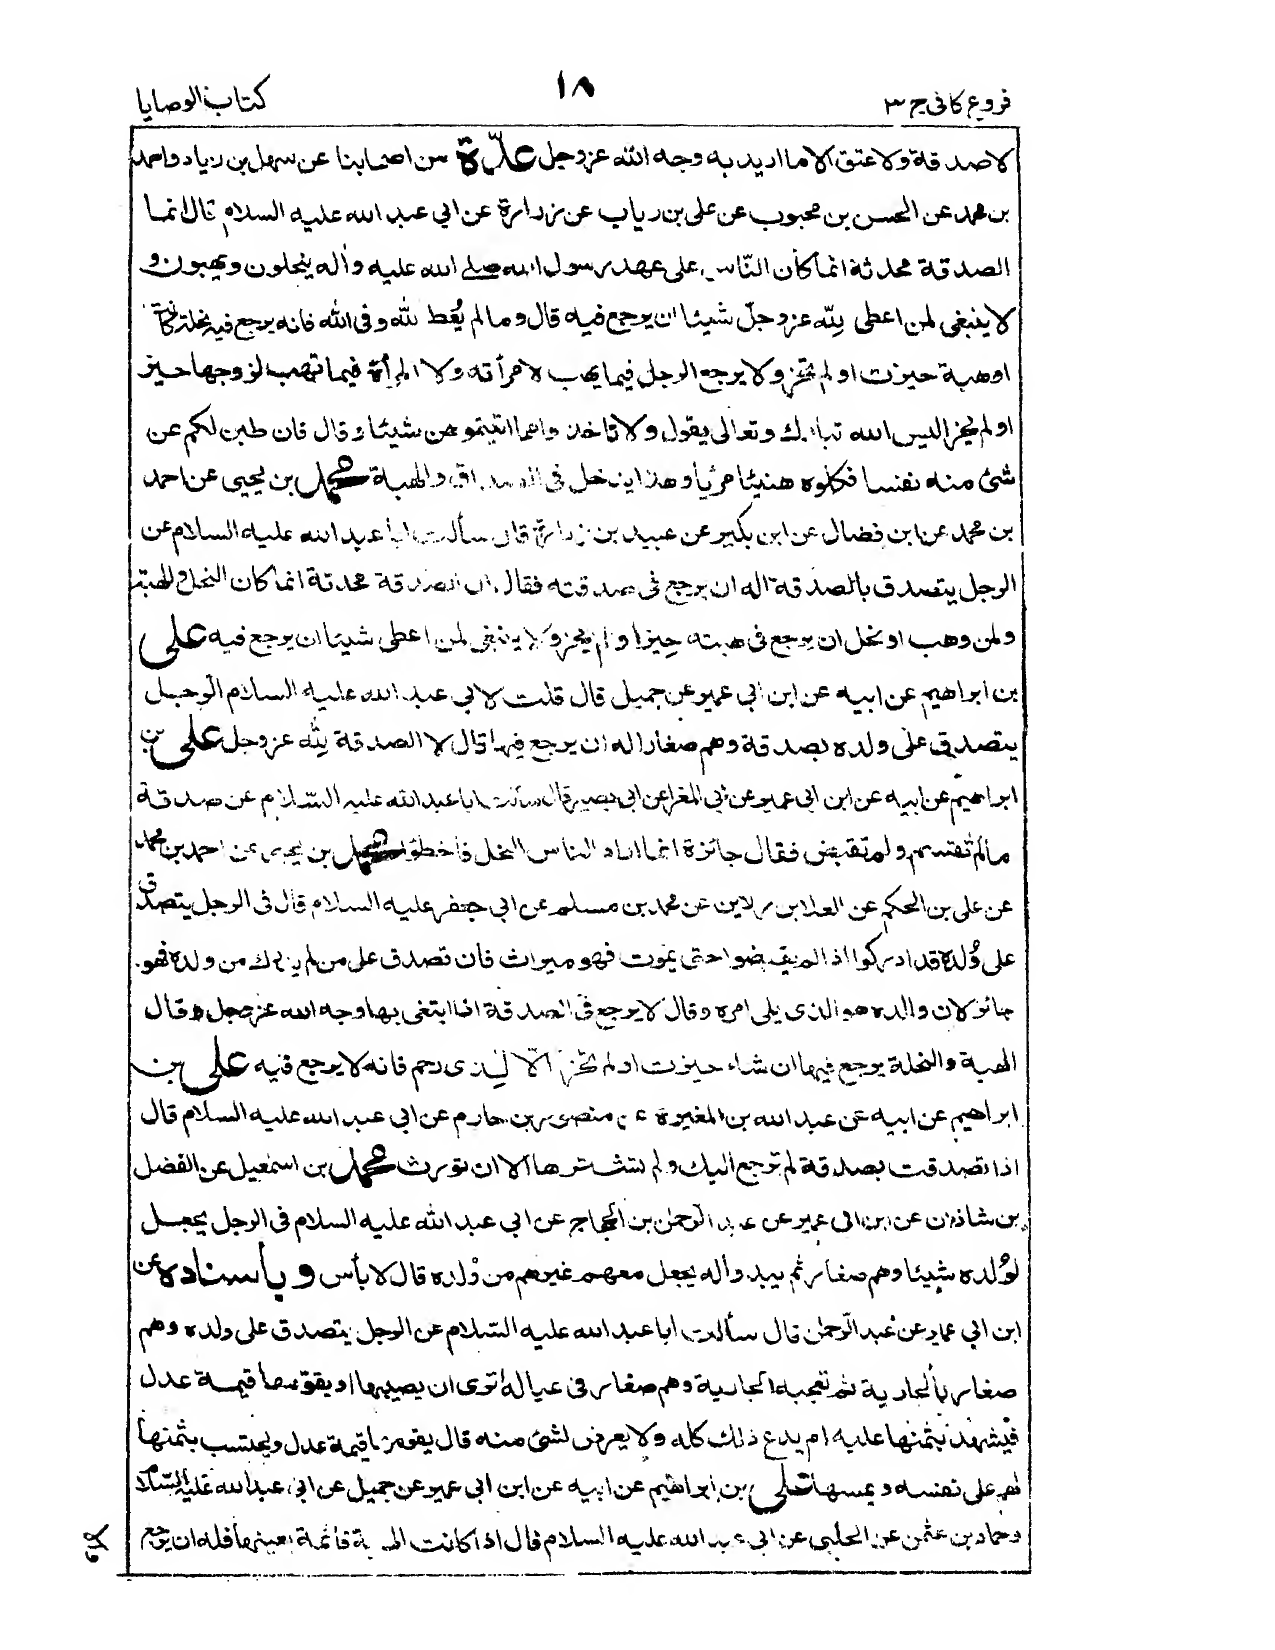 فروع كافى ج ٣
١٨
كتاب الوصايا
لا صدقة ولا عتق الا ما اريد به وجه الله عز وجل عدّة من اصحابنا عن سهل بن زياد واحمد
بن محمد عن الحسن بن محبوب عن على بن رياب عن زرارة عن ابى عبد الله عليه السلام قال انما
الصدقة محدثة انما كان النّاس على عهد رسول الله صلى الله عليه وأله ينحلون ويهبون و
لا ينبغى لمن اعطى لله عز وجلّ شيئا ان يرجع فيه قال وما لم يُعْط لله وفى الله فانه يرجع فيه نحلة كانت
او هبة حيزت او لم تحز ولا يرجع الرجل فيما يهب لامرأته ولا المرأة فيما تهب لزوجها حيز
او لم يحز اليس الله تبارك وتعالى يقول ولا تاخذوا مما اتيتموهن شيئا وقال فان طبن لكم عن
شئ منه نفسا فكلوه هنيئا مريأ وهذا يدخل فى الصداق والهبة محمد بن يحيى عن احمد
بن محمد عن ابن فضال عن ابن بكير عن عبيد بن زرارة قال سألت ابا عبد الله عليه السلام عن
الرجل يتصدق بالصدقة اله ان يرجع فى صدقته فقال ان الصدقة محدثة انما كان النحل والهبة
ولمن وهب او نحل ان يرجع فى هبته حيزا ولم يحز ولا ينبغى لمن اعطى شيئا ان يرجع فيه على
بن ابراهيم عن ابيه عن ابن ابى عمير عن جميل قال قلت لابى عبد الله عليه السلام الرجل
يتصدق على ولده بصدقة وهم صغار اله ان يرجع فيها قال لا الصدقة لله عز وجل على بن
ابراهيم عن ابيه عن ابن ابى عمير عن ابى المغرا عن ابى بصير قال سألت ابا عبد الله عليه السّلام عن صدقة
ما لم تقتسم ولم تقبض فقال جائزة انما اراد الناس النحل فاخطؤا محمد بن يحيى عن احمد بن محمد
عن على بن الحكم عن العلا بن رزين عن محمد بن مسلم عن ابى جعفر عليه السلام قال فى الرجل يتصدق
على وُلده قد ادركوا اذا لم يقبضوا حتى يموت فهو ميراث فان تصدق على من لم يدرك من ولده فهو
جائز لان والده هو الذى يلى امره وقال لا يرجع فى الصدقة اذا ابتغى بها وجه الله عز وجل وقال
الهبة والنحلة يرجع فيها ان شاء حيزت او لم تحز الّا لذى رحم فانه لا يرجع فيه على بن
ابراهيم عن ابيه عن عبد الله بن المغيرة عن منصور بن حازم عن ابى عبد الله عليه السلام قال
اذا تصدقت بصدقة لم ترجع اليك ولم تشترها الا ان تورث محمد بن اسمعيل عن الفضل
بن شاذان عن ابن ابى عمير عن عبد الرحمن بن الحجاج عن ابى عبد الله عليه السلام فى الرجل يجعل
لوُلده شيئا وهم صغار ثم يبدو اله يجعل معهم غيرهم من وُلده قال لا بأس وبأسناده عن
ابن ابى عمير عن عبد الرّحمن قال سألت ابا عبد الله عليه السّلام عن الرجل يتصدق على ولده وهم
صغار بالجارية ثم تعجبه الجارية وهم صغار فى عياله أترى ان يصيبها او يقوّمها قيمة عدل
فيشهد بثمنها عليه ام يدع ذلك كله ولا يعرض لشئ منه قال يقومها قيمة عدل ويحتسب بثمنها
لهم على نفسه ويمسها على بن ابراهيم عن ابيه عن ابن ابى عمير عن جميل عن ابى عبد الله عليه السّلام
وحماد بن عثمن عن الحلبى عن ابى عبد الله عليه السلام قال اذا كانت الهبة قائمة بعينها فله ان يرجع